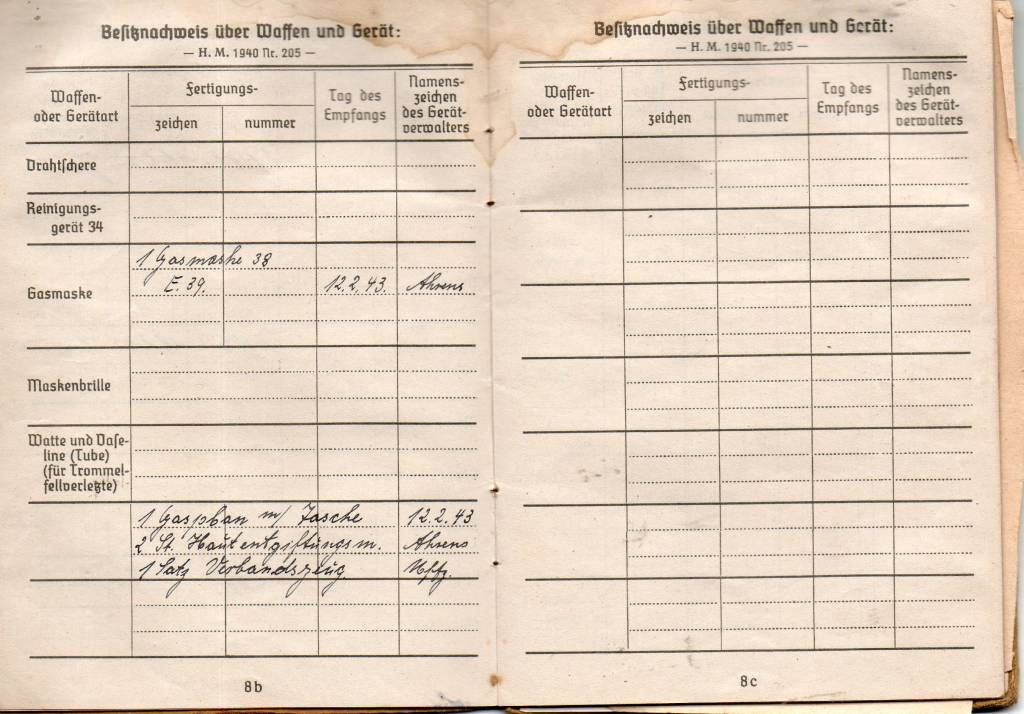 Besitznachweis über Waffen und Gerät:
— H. M. 1940 Nr. 205 —
Waffen-
oder Gerätart
Fertigungs-
zeichen
nummer
Tag des
Empfangs
Namens-
zeichen
des Gerät-
verwalters
Drahtschere
Reinigungs-
gerät 34
Gasmaske
1 Gasmaske 38
E. 39. 12.2.43. Ahrens
Maskenbrille
Watte und Vase-
line (Tube)
(für Trommel-
fellverletzte)
1 Gasplan m/ Tasche 12.2.43
2 St. Hautentgiftungsm. Ahrens
1 Satz Verbandszeug Uffz.
8b
Besitznachweis über Waffen und Gerät:
— H. M. 1940 Nr. 205 —
Waffen-
oder Gerätart
Fertigungs-
zeichen
nummer
Tag des
Empfangs
Namens-
zeichen
des Gerät-
verwalters
8c